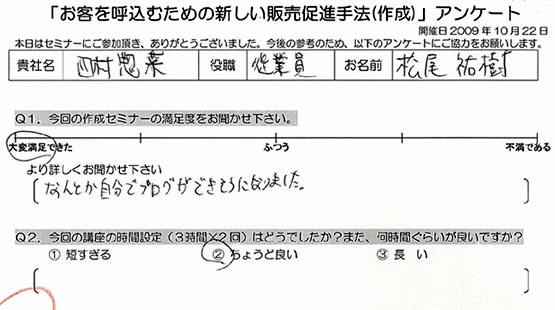 「お客を呼込むための新しい販売促進手法(作成)」アンケート
開催日2009年10月22日
本日はセミナーにご参加頂き、ありがとうございました。今後の参考のため、以下のアンケートにご協力をお願いします。
貴社名 西村惣菜 役職 従業員 お名前 松尾祐樹
Q1．今回の作成セミナーの満足度をお聞かせ下さい。
大変満足できた ふつう 不満である
より詳しくお聞かせ下さい
なんとか自分でブログができそうになりました。
Q2．今回の講座の時間設定（3時間×2回）はどうでしたか？また、何時間ぐらいが良いですか？
① 短すぎる ② ちょうど良い ③ 長 い